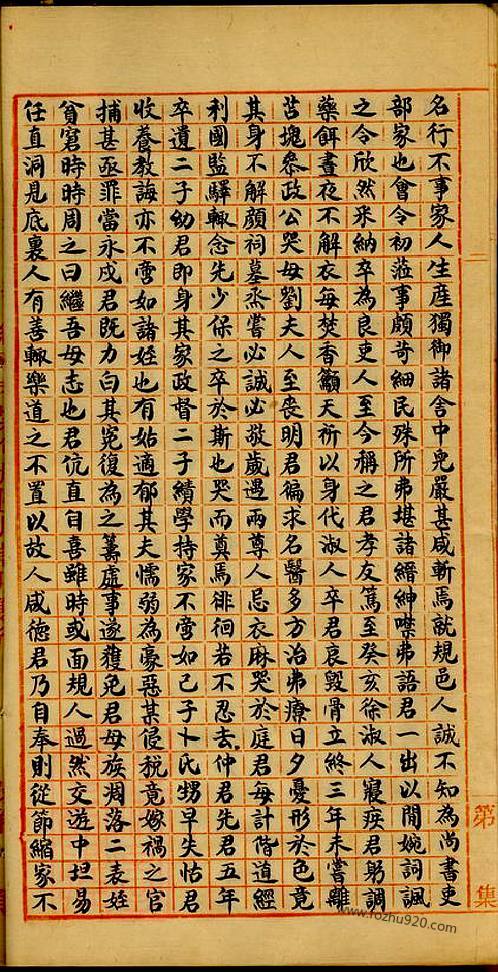 名行不事家人生產獨御諸舍中皃嚴甚咸斬焉就規邑人誠不知為尚書吏
部家也會令初蒞事頗苛細民殊所弗堪諸縉紳噤弗語君一出以閒婉詞諷
之令欣然采納卒為良吏人至今稱之君孝友篤至癸亥徐淑人寢疾君躬調
藥餌晝夜不解衣每焚香籲天祈以身代淑人卒君哀毀骨立終三年未嘗離
苫塊叅政公哭母劉夫人至喪明君徧求名醫多方治弗療日夕憂形於色竟
其身不解顏祠墓烝嘗必誠必敬歲遇兩尊人忌衣麻哭於庭君每計偕道經
利國監驛輙念先少保之卒於斯也哭而奠焉徘徊若不忍去仲君先君五年
卒遺二子幼君即身其家政督二子績學持家不啻如己子卜氏甥早失怙君
收養教誨亦不啻如諸姪也有姑適郁其夫懦弱為豪惡某侵稅竟嫁禍之官
捕甚亟罪當永戍君既力白其冤復為之籌虛事遂獲免君母族凋落二表姪
貧窘時時周之曰繼吾母志也君伉直自喜雖時或面規人過然交遊中坦易
任直洞見底裏人有善輙樂道之不置以故人咸德君乃自奉則從節縮家不
第 集
www.fozhu920.com